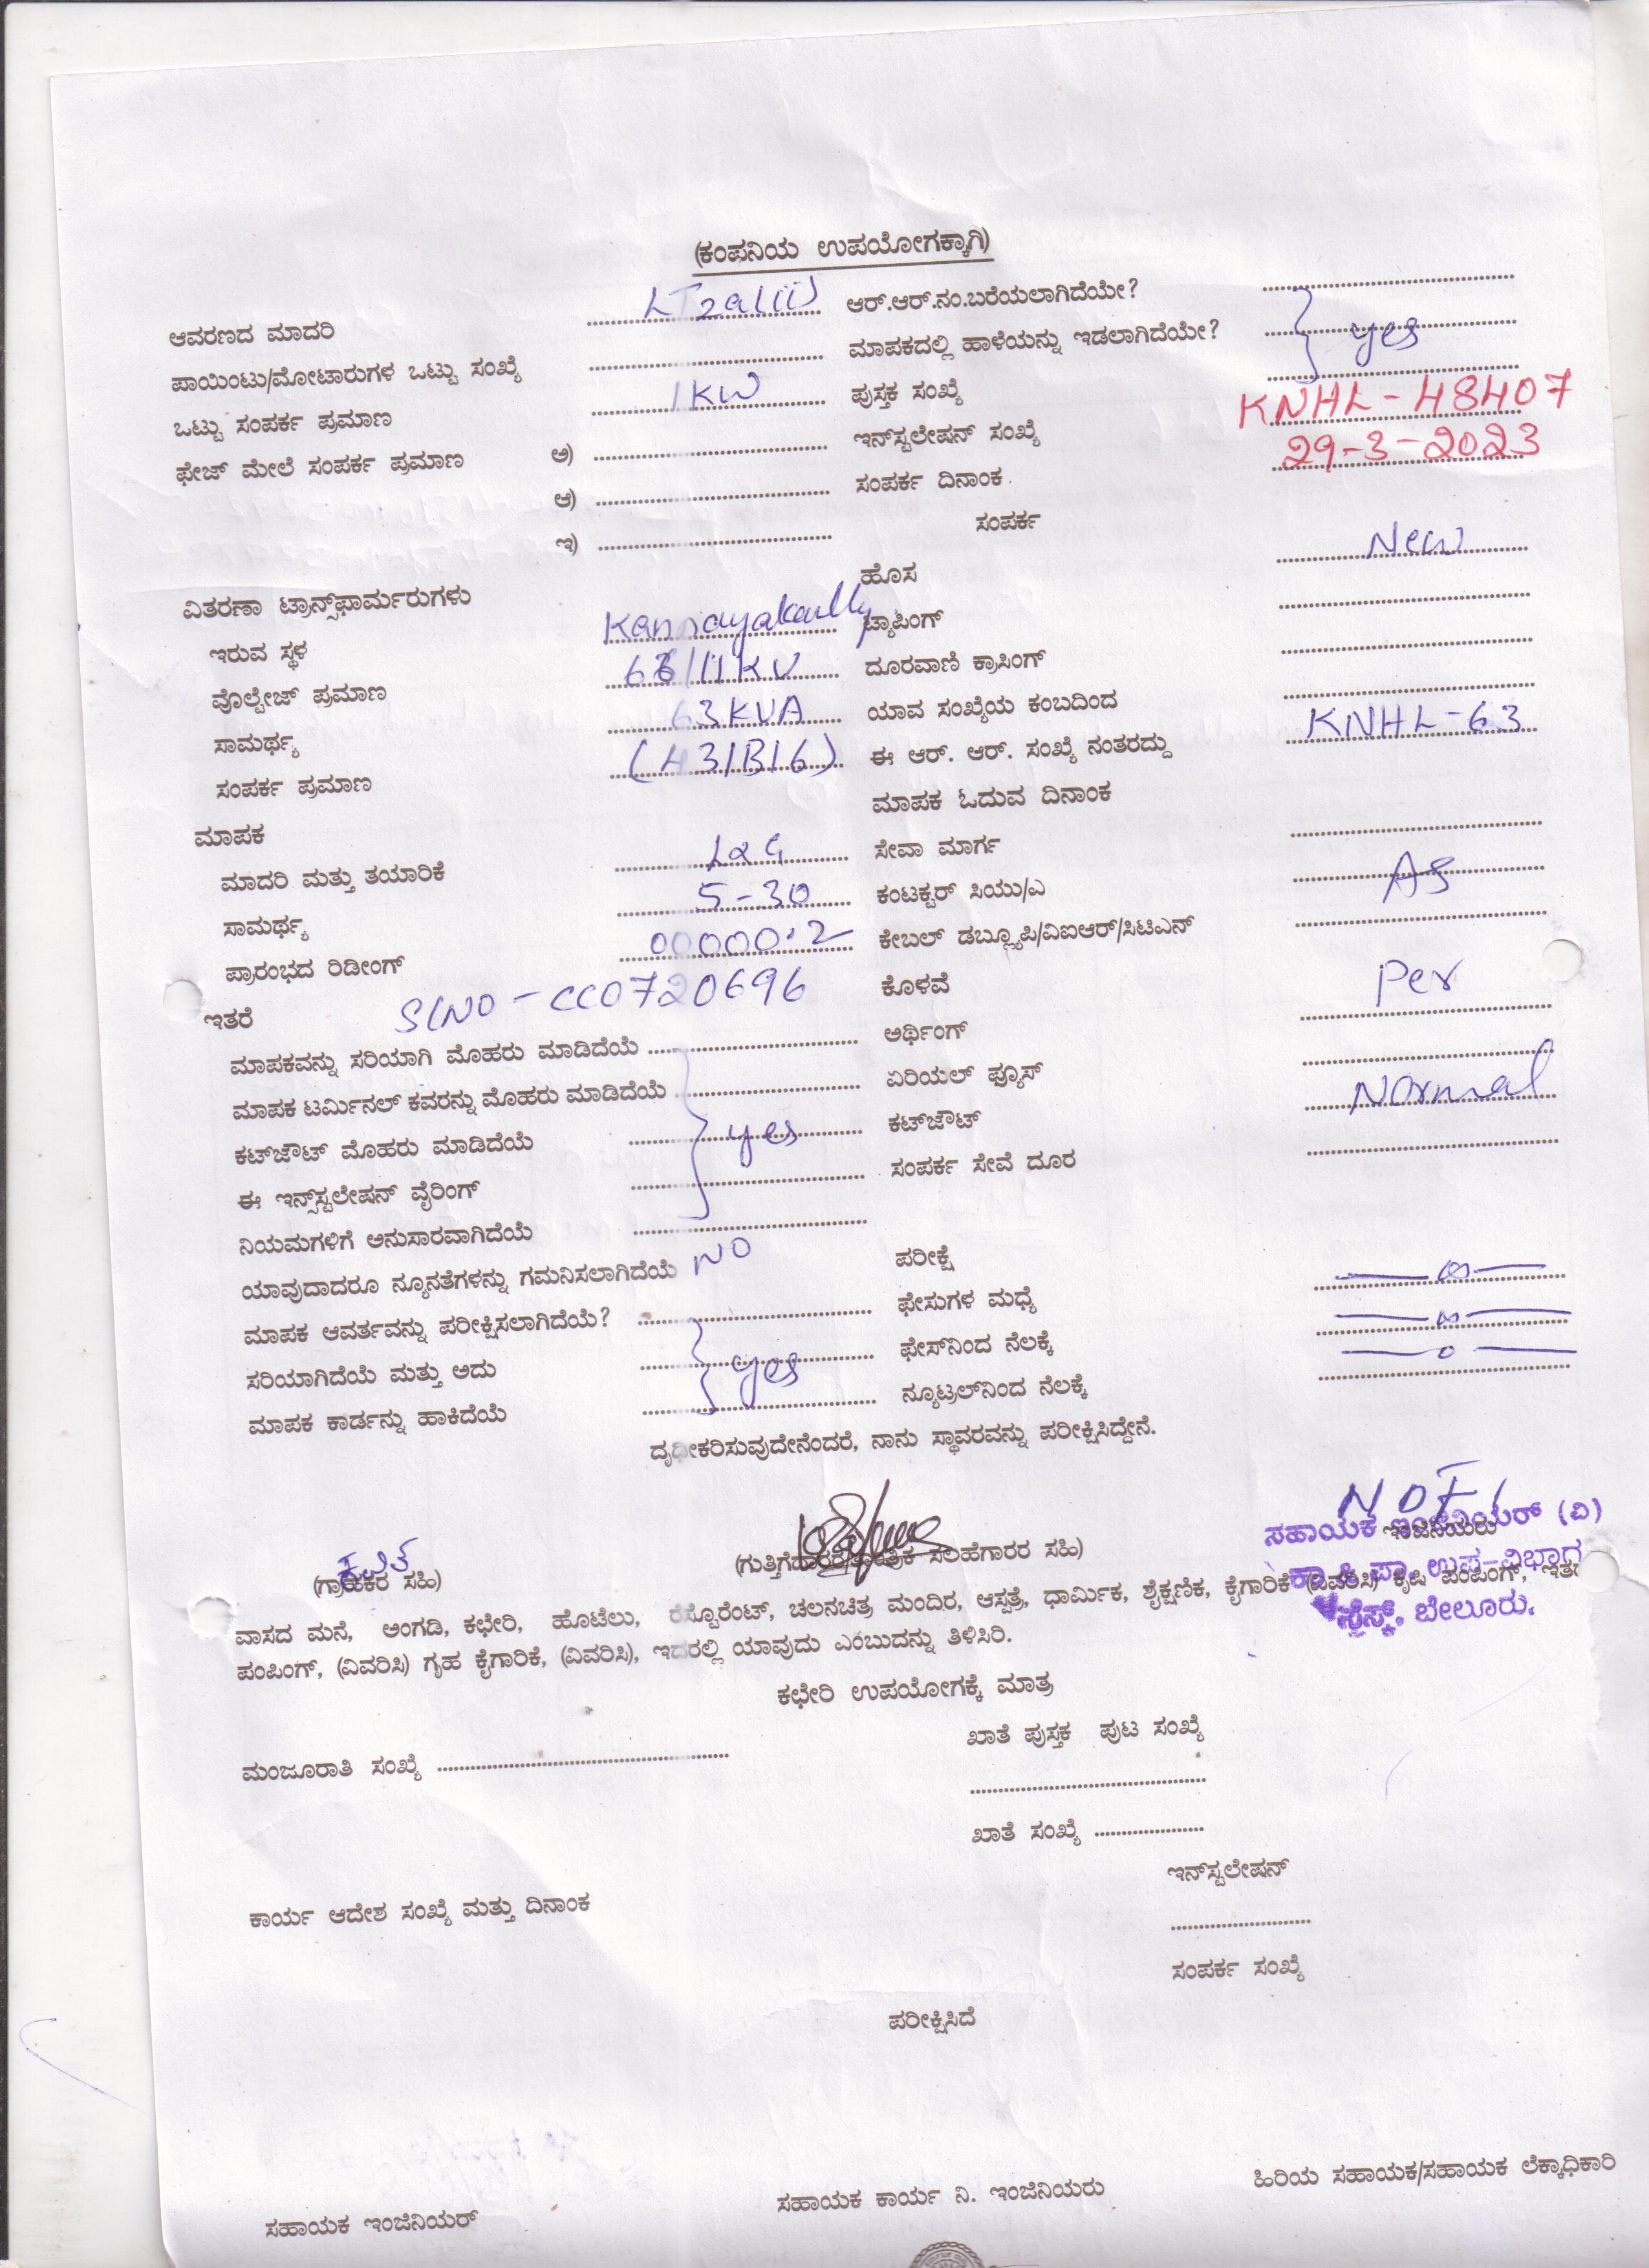 (ಕಂಪನಿಯ ಉಪಯೋಗಕ್ಕಾಗಿ)
ಆವರಣದ ಮಾದರಿ LT2a(ii) ಆರ್.ಆರ್.ನಂ.ಬರೆಯಲಾಗಿದೆಯೇ?
ಪಾಯಿಂಟು/ಮೋಟಾರುಗಳ ಒಟ್ಟು ಸಂಖ್ಯೆ ಮಾಪಕದಲ್ಲಿ ಹಾಳೆಯನ್ನು ಇಡಲಾಗಿದೆಯೇ? yes
ಒಟ್ಟು ಸಂಪರ್ಕ ಪ್ರಮಾಣ 1KW ಪುಸ್ತಕ ಸಂಖ್ಯೆ
ಫೇಜ್ ಮೇಲೆ ಸಂಪರ್ಕ ಪ್ರಮಾಣ ಅ) ಇನ್‌ಸ್ಟಲೇಷನ್ ಸಂಖ್ಯೆ KNHL-48407
ಆ) ಸಂಪರ್ಕ ದಿನಾಂಕ 29-3-2023
ಇ) ಸಂಪರ್ಕ
ವಿತರಣಾ ಟ್ರಾನ್ಸ್‌ಫಾರ್ಮರುಗಳು ಹೊಸ New
ಇರುವ ಸ್ಥಳ ಟ್ಯಾಪಿಂಗ್
ವೊಲ್ಟೇಜ್ ಪ್ರಮಾಣ 66/11KV ದೂರವಾಣಿ ಕ್ರಾಸಿಂಗ್
ಸಾಮರ್ಥ್ಯ 63KVA ಯಾವ ಸಂಖ್ಯೆಯ ಕಂಬದಿಂದ
ಸಂಪರ್ಕ ಪ್ರಮಾಣ (431B16) ಈ ಆರ್. ಆರ್. ಸಂಖ್ಯೆ ನಂತರದ್ದು KNHL-63
ಮಾಪಕ ಮಾಪಕ ಓದುವ ದಿನಾಂಕ
ಮಾದರಿ ಮತ್ತು ತಯಾರಿಕೆ L&G ಸೇವಾ ಮಾರ್ಗ
ಸಾಮರ್ಥ್ಯ 5-30 ಕಂಟಕ್ಟರ್ ಸಿಯು/ಎ As
ಪ್ರಾರಂಭದ ರಿಡೀಂಗ್ 00000.2 ಕೇಬಲ್ ಡಬ್ಲ್ಯೂಪಿ/ವಿಐಆರ್/ಸಿಟಿಎನ್
ಇತರೆ Sl NO - CC0720696 ಕೊಳವೆ Per
ಮಾಪಕವನ್ನು ಸರಿಯಾಗಿ ಮೊಹರು ಮಾಡಿದೆಯೆ ಅರ್ಥಿಂಗ್
ಮಾಪಕ ಟರ್ಮಿನಲ್ ಕವರನ್ನು ಮೊಹರು ಮಾಡಿದೆಯೆ ಏರಿಯಲ್ ಫ್ಯೂಸ್ Normal
ಕಟ್‌ಔಟ್ ಮೊಹರು ಮಾಡಿದೆಯೆ yes ಕಟ್‌ಔಟ್
ಈ ಇನ್ಸ್‌ಸ್ಟಲೇಷನ್ ವೈರಿಂಗ್ ಸಂಪರ್ಕ ಸೇವೆ ದೂರ
ನಿಯಮಗಳಿಗೆ ಅನುಸಾರವಾಗಿದೆಯೆ
ಯಾವುದಾದರೂ ನ್ಯೂನತೆಗಳನ್ನು ಗಮನಿಸಲಾಗಿದೆಯೆ NO ಪರೀಕ್ಷೆ
ಮಾಪಕ ಆವರ್ತವನ್ನು ಪರೀಕ್ಷಿಸಲಾಗಿದೆಯೆ? ಫೇಸುಗಳ ಮಧ್ಯೆ
ಸರಿಯಾಗಿದೆಯೆ ಮತ್ತು ಅದು yes ಫೇಸ್‌ನಿಂದ ನೆಲಕ್ಕೆ
ಮಾಪಕ ಕಾರ್ಡನ್ನು ಹಾಕಿದೆಯೆ ನ್ಯೂಟ್ರಲ್‌ನಿಂದ ನೆಲಕ್ಕೆ
ದೃಢೀಕರಿಸುವುದೇನೆಂದರೆ, ನಾನು ಸ್ಥಾವರವನ್ನು ಪರೀಕ್ಷಿಸಿದ್ದೇನೆ.
ಸಹಾಯಕ ಇಂಜಿನಿಯರ್ (ವಿ)
ಇಂಜಿನಿಯರು
(ಗ್ರಾಹಕರ ಸಹಿ) ಸಲಹೆಗಾರರ ಸಹಿ) ಉಪ-ವಿಭಾಗ
ವಾಸದ ಮನೆ, ಅಂಗಡಿ, ಕಛೇರಿ, ಹೊಟೆಲು, ರೆಸ್ಟೊರೆಂಟ್, ಚಲನಚಿತ್ರ ಮಂದಿರ, ಆಸ್ಪತ್ರೆ, ಧಾರ್ಮಿಕ, ಶೈಕ್ಷಣಿಕ, ಕೈಗಾರಿಕೆ (ವಿವರಿಸಿ) ಕೃಷಿ ಪಂಪಿಂಗ್, ಇತರೆ
ಸೆಸ್ಕ್, ಬೇಲೂರು.
ಪಂಪಿಂಗ್, (ವಿವರಿಸಿ) ಗೃಹ ಕೈಗಾರಿಕೆ, (ವಿವರಿಸಿ), ಇದರಲ್ಲಿ ಯಾವುದು ಎಂಬುದನ್ನು ತಿಳಿಸಿರಿ.
ಕಛೇರಿ ಉಪಯೋಗಕ್ಕೆ ಮಾತ್ರ
ಖಾತೆ ಪುಸ್ತಕ ಪುಟ ಸಂಖ್ಯೆ
ಮಂಜೂರಾತಿ ಸಂಖ್ಯೆ
ಖಾತೆ ಸಂಖ್ಯೆ
ಇನ್‌ಸ್ಟಲೇಷನ್
ಕಾರ್ಯ ಆದೇಶ ಸಂಖ್ಯೆ ಮತ್ತು ದಿನಾಂಕ
ಸಂಪರ್ಕ ಸಂಖ್ಯೆ
ಪರೀಕ್ಷಿಸಿದೆ
ಸಹಾಯಕ ಇಂಜಿನಿಯರ್ ಸಹಾಯಕ ಕಾರ್ಯ ನಿ. ಇಂಜಿನಿಯರು ಹಿರಿಯ ಸಹಾಯಕ/ಸಹಾಯಕ ಲೆಕ್ಕಾಧಿಕಾರಿ